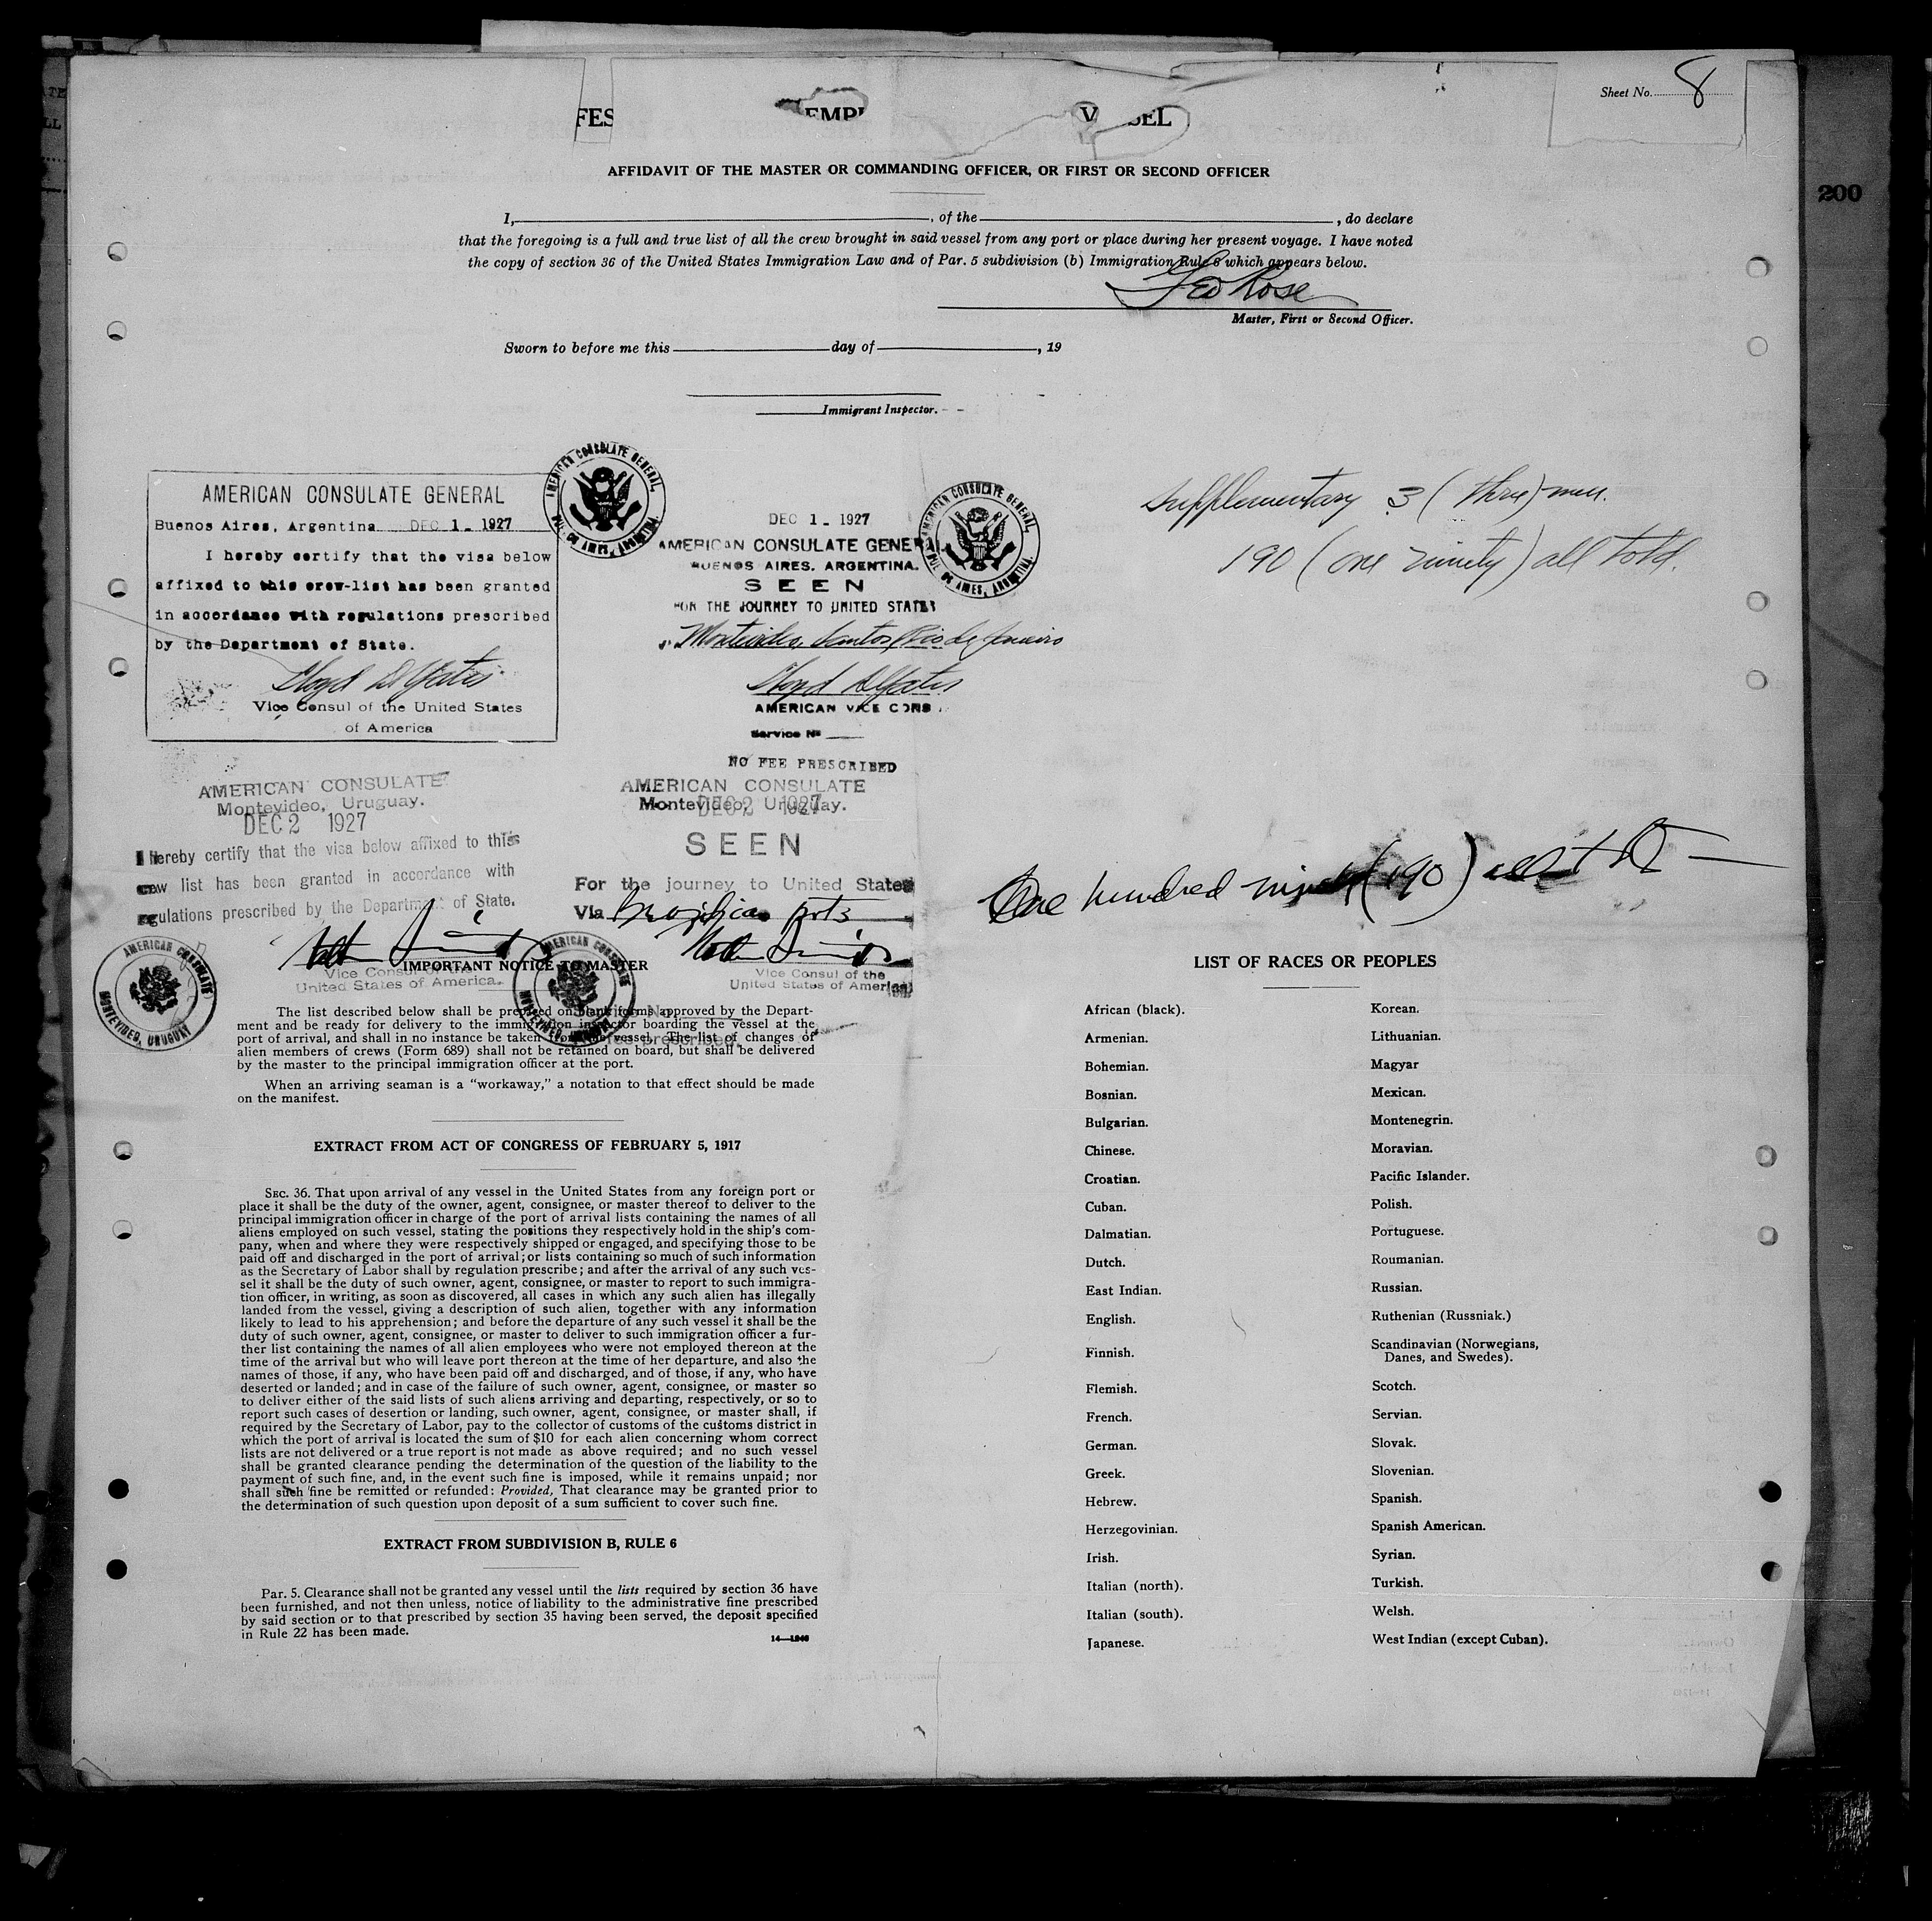 Sheet No. 8
200
FES EMPL V SEL
AFFIDAVIT OF THE MASTER OR COMMANDING OFFICER, OR FIRST OR SECOND OFFICER
I, , of the , do declare
that the foregoing is a full and true list of all the crew brought in said vessel from any port or place during her present voyage. I have noted
the copy of section 36 of the United States Immigration Law and of Par. 5 subdivision (b) Immigration Rule 6 which appears below.
Geo Rose
Master, First or Second Officer.
Sworn to before me this day of , 19
Immigrant Inspector.
AMERICAN CONSULATE GENERAL
Buenos Aires, Argentina DEC 1 - 1927
I hereby certify that the visa below
affixed to this crew-list has been granted
in accordance with regulations prescribed
by the Department of State.
Lloyd D Yates
Vice Consul of the United States
of America
AMERICAN CONSULATE GENERAL,
BUENOS AIRES, ARGENTINA.
DEC 1 - 1927
AMERICAN CONSULATE GENERAL
BUENOS AIRES. ARGENTINA.
SEEN
FOR THE JOURNEY TO UNITED STATES
Montevideo, Santos, Rio de Janeiro
Lloyd D Yates
AMERICAN VICE CONS
Service No
NO FEE PRESCRIBED
AMERICAN CONSULATE GENERAL,
BUENOS AIRES, ARGENTINA.
Supplementary 3 (three) men.
190 (one ninety) all told.
AMERICAN CONSULATE
Montevideo, Uruguay.
DEC 2 1927
I hereby certify that the visa below affixed to this
crew list has been granted in accordance with
regulations prescribed by the Department of State.
Vice Consul of the
United States of America.
AMERICAN CONSULATE
MONTEVIDEO, URUGUAY
AMERICAN CONSULATE
Montevideo, Uruguay.
DEC 2 1927
SEEN
For the journey to United States
Via Brazilian ports
Vice Consul of the
United States of America
AMERICAN CONSULATE
MONTEVIDEO, URUGUAY
No
fee prescribed.
One hundred ninety (190) all told
IMPORTANT NOTICE TO MASTER
The list described below shall be prepared on blank forms approved by the Depart-
ment and be ready for delivery to the immigration inspector boarding the vessel at the
port of arrival, and shall in no instance be taken from the vessel. The list of changes of
alien members of crews (Form 689) shall not be retained on board, but shall be delivered
by the master to the principal immigration officer at the port.
When an arriving seaman is a “workaway,” a notation to that effect should be made
on the manifest.
EXTRACT FROM ACT OF CONGRESS OF FEBRUARY 5, 1917
SEC. 36. That upon arrival of any vessel in the United States from any foreign port or
place it shall be the duty of the owner, agent, consignee, or master thereof to deliver to the
principal immigration officer in charge of the port of arrival lists containing the names of all
aliens employed on such vessel, stating the positions they respectively hold in the ship's com-
pany, when and where they were respectively shipped or engaged, and specifying those to be
paid off and discharged in the port of arrival; or lists containing so much of such information
as the Secretary of Labor shall by regulation prescribe; and after the arrival of any such ves-
sel it shall be the duty of such owner, agent, consignee, or master to report to such immigra-
tion officer, in writing, as soon as discovered, all cases in which any such alien has illegally
landed from the vessel, giving a description of such alien, together with any information
likely to lead to his apprehension; and before the departure of any such vessel it shall be the
duty of such owner, agent, consignee, or master to deliver to such immigration officer a fur-
ther list containing the names of all alien employees who were not employed thereon at the
time of the arrival but who will leave port thereon at the time of her departure, and also the
names of those, if any, who have been paid off and discharged, and of those, if any, who have
deserted or landed; and in case of the failure of such owner, agent, consignee, or master so
to deliver either of the said lists of such aliens arriving and departing, respectively, or so to
report such cases of desertion or landing, such owner, agent, consignee, or master shall, if
required by the Secretary of Labor, pay to the collector of customs of the customs district in
which the port of arrival is located the sum of $10 for each alien concerning whom correct
lists are not delivered or a true report is not made as above required; and no such vessel
shall be granted clearance pending the determination of the question of the liability to the
payment of such fine, and, in the event such fine is imposed, while it remains unpaid; nor
shall such fine be remitted or refunded: Provided, That clearance may be granted prior to
the determination of such question upon deposit of a sum sufficient to cover such fine.
EXTRACT FROM SUBDIVISION B, RULE 6
Par. 5. Clearance shall not be granted any vessel until the lists required by section 36 have
been furnished, and not then unless, notice of liability to the administrative fine prescribed
by said section or to that prescribed by section 35 having been served, the deposit specified
in Rule 22 has been made.
14—1240
LIST OF RACES OR PEOPLES
African (black).
Armenian.
Bohemian.
Bosnian.
Bulgarian.
Chinese.
Croatian.
Cuban.
Dalmatian.
Dutch.
East Indian.
English.
Finnish.
Flemish.
French.
German.
Greek.
Hebrew.
Herzegovinian.
Irish.
Italian (north).
Italian (south).
Japanese.
Korean.
Lithuanian.
Magyar
Mexican.
Montenegrin.
Moravian.
Pacific Islander.
Polish.
Portuguese.
Roumanian.
Russian.
Ruthenian (Russniak.)
Scandinavian (Norwegians,
Danes, and Swedes).
Scotch.
Servian.
Slovak.
Slovenian.
Spanish.
Spanish American.
Syrian.
Turkish.
Welsh.
West Indian (except Cuban).